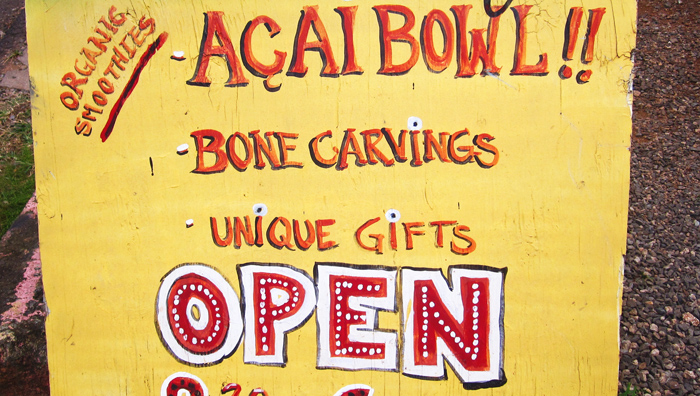 ORGANIC
SMOOTHIES
- AÇAI BOWL!!
- BONE CARVINGS
- UNIQUE GIFTS
OPEN